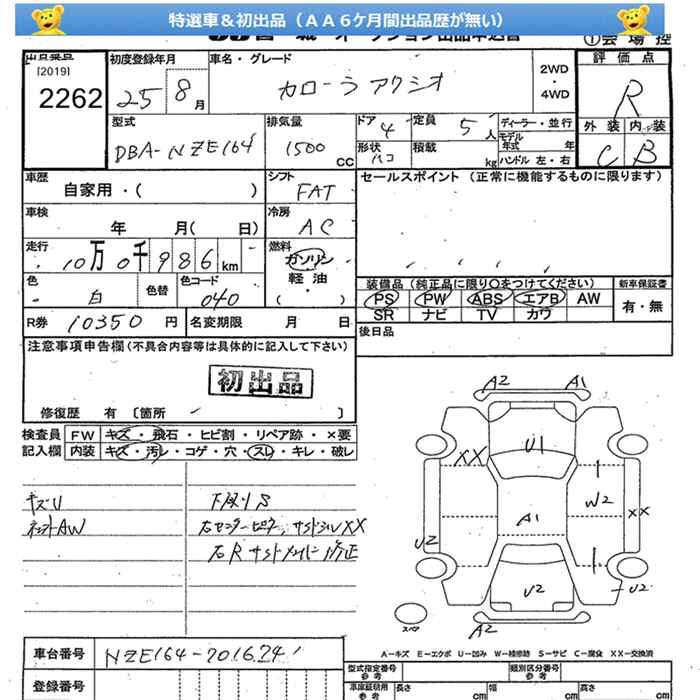 特選車＆初出品（ＡＡ６ケ月間出品歴が無い）
①会場控
[2019]
2262
初度登録年月
25 8月
車名・グレード
カローラ アクシオ
2WD
・
4WD
評価点
R
外装 内装
C B
型式
DBA-NZE164
排気量
1500 CC
ドア 4
形状 ハコ
定員 5人
積載 kg
ディーラー・並行
モデル年式 年
ハンドル 左・右
車歴
自家用・( )
シフト
FAT
セールスポイント（正常に機能するものに限ります）
車検
年 月( 日)
冷房
AC
走行
10万0千986km
燃料
ガソリン
軽油
・
( )
色
白
色替
色コード
040
装備品（純正品に限り○をつけてください）
PS PW ABS エアB AW
SR ナビ TV カワ
新車保証書
有・無
R券 10350円
名変期限 月 日
後日品
注意事項申告欄（不具合内容等は具体的に記入して下さい）
初出品
修復歴 有〔箇所 〕
検査員記入欄
FW キズ・飛石・ヒビ割・リペア跡・×要
内装 キズ・汚レ・コゲ・穴・スレ・キレ・破レ
キズU
下廻りS
右センターピラー, サイドシルXX
右Rサイドメンバー修正
A2
A1
U1
XX
W2
A1
XX
U2
U2
U2
スペア
A2
A－キズ E－エクボ U－凹み W－補修跡 S－サビ C－腐食 XX－交換済
車台番号
NZE164-7016241
登録番号
型式指定番号
参考
類別区分番号
参考
車庫証明用
参考
長さ cm
幅 cm
高さ cm